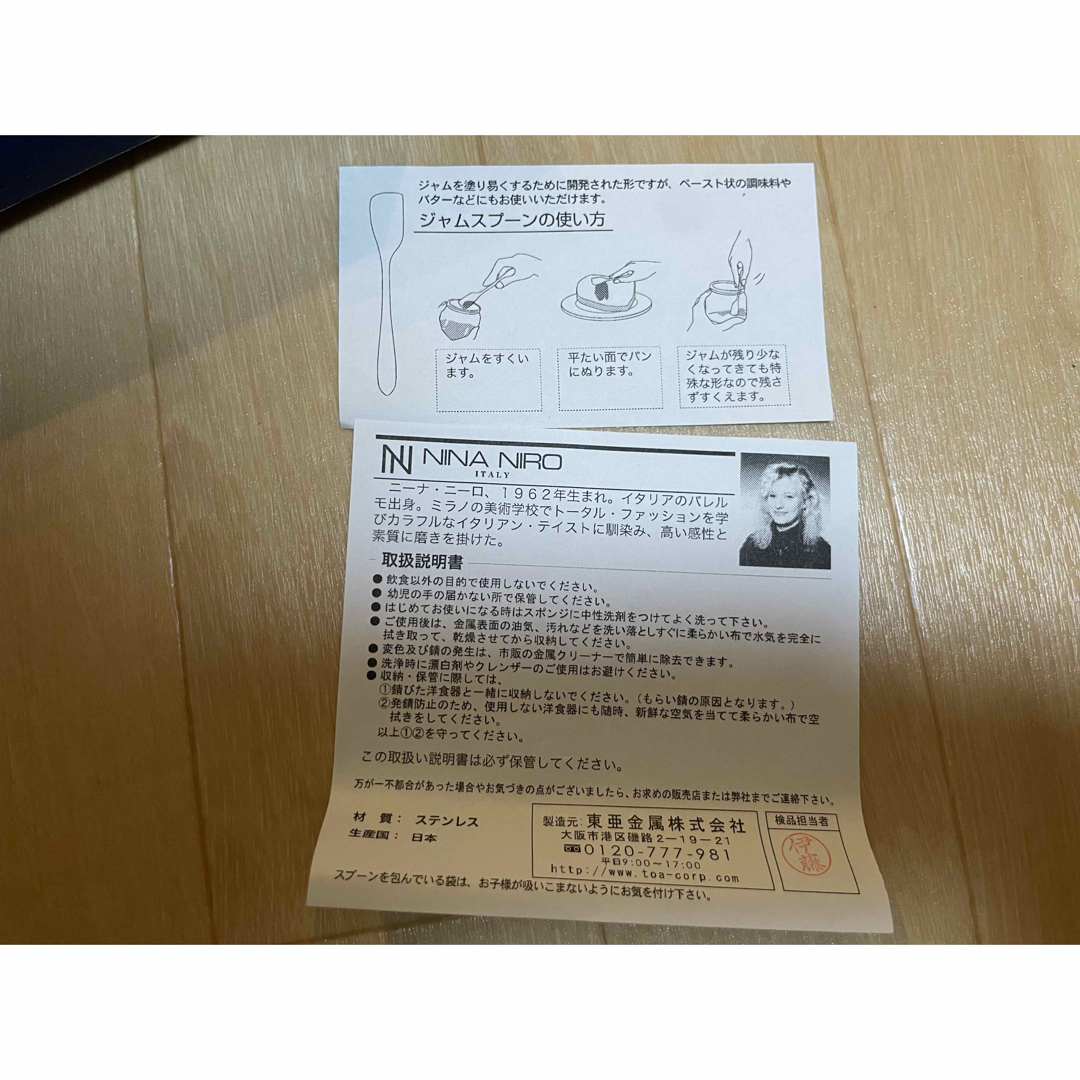 ジャムを塗り易くするために開発された形ですが、ペースト状の調味料や
バターなどにもお使いいただけます。
ジャムスプーンの使い方
ジャムをすくい
ます。
平たい面でパン
にぬります。
ジャムが残り少な
くなってきても特
殊な形なので残さ
ずすくえます。
NINA NIRO
ITALY
ニーナ・ニーロ、1962年生まれ。イタリアのパレル
モ出身。ミラノの美術学校でトータル・ファッションを学
びカラフルなイタリアン・テイストに馴染み、高い感性と
素質に磨きを掛けた。
取扱説明書
●飲食以外の目的で使用しないでください。
●幼児の手の届かない所で保管してください。
●はじめてお使いになる時はスポンジに中性洗剤をつけてよく洗って下さい。
●ご使用後は、金属表面の油気、汚れなどを洗い落としすぐに柔らかい布で水気を完全に
拭き取って、乾燥させてから収納してください。
●変色及び錆の発生は、市販の金属クリーナーで簡単に除去できます。
●洗浄時に漂白剤やクレンザーのご使用はお避けください。
●収納・保管に際しては、
①錆びた洋食器と一緒に収納しないでください。(もらい錆の原因となります。)
②発錆防止のため、使用しない洋食器にも随時、新鮮な空気を当てて柔らかい布で空
拭きをしてください。
以上①②を守ってください。
この取扱い説明書は必ず保管してください。
万が一不都合があった場合やお気づきの点がございましたら、お求めの販売店または弊社までご連絡下さい。
材 質： ステンレス
生産国： 日本
製造元：東亜金属株式会社
大阪市港区磯路2-19-21
0120-777-981
平日9:00～17:00
http://www.toa-corp.com
検品担当者
伊藤
スプーンを包んでいる袋は、お子様が吸いこまないようにお気を付け下さい。